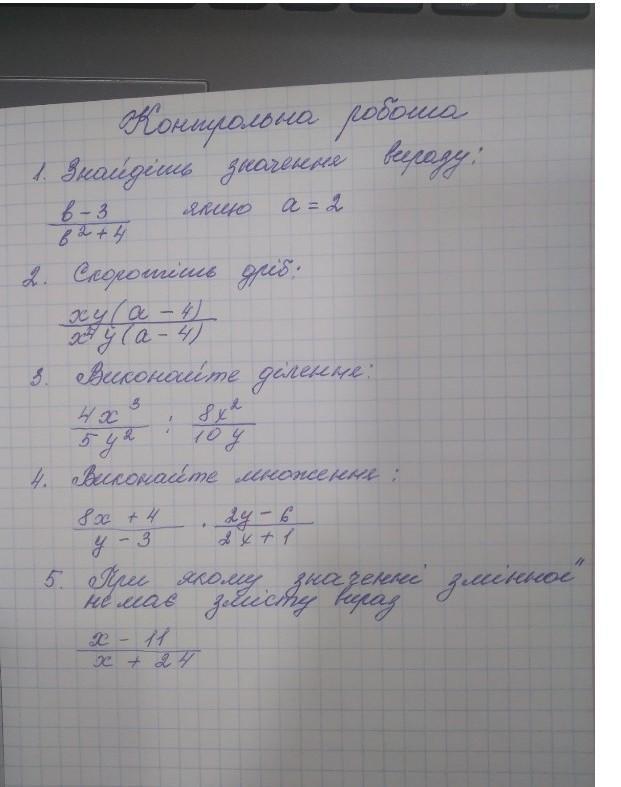 Контрольна робота
1. Знайдіть значення виразу:
в - 3 / в² + 4 якщо а = 2
2. Скоротіть дріб:
xy(a - 4) / x⁴y(a - 4)
3. Виконайте ділення:
4x³ / 5y² : 8x² / 10y
4. Виконайте множення:
8x + 4 / y - 3 · 2y - 6 / 2x + 1
5. При якому значенні змінної
немає змісту вираз
x - 11 / x + 24